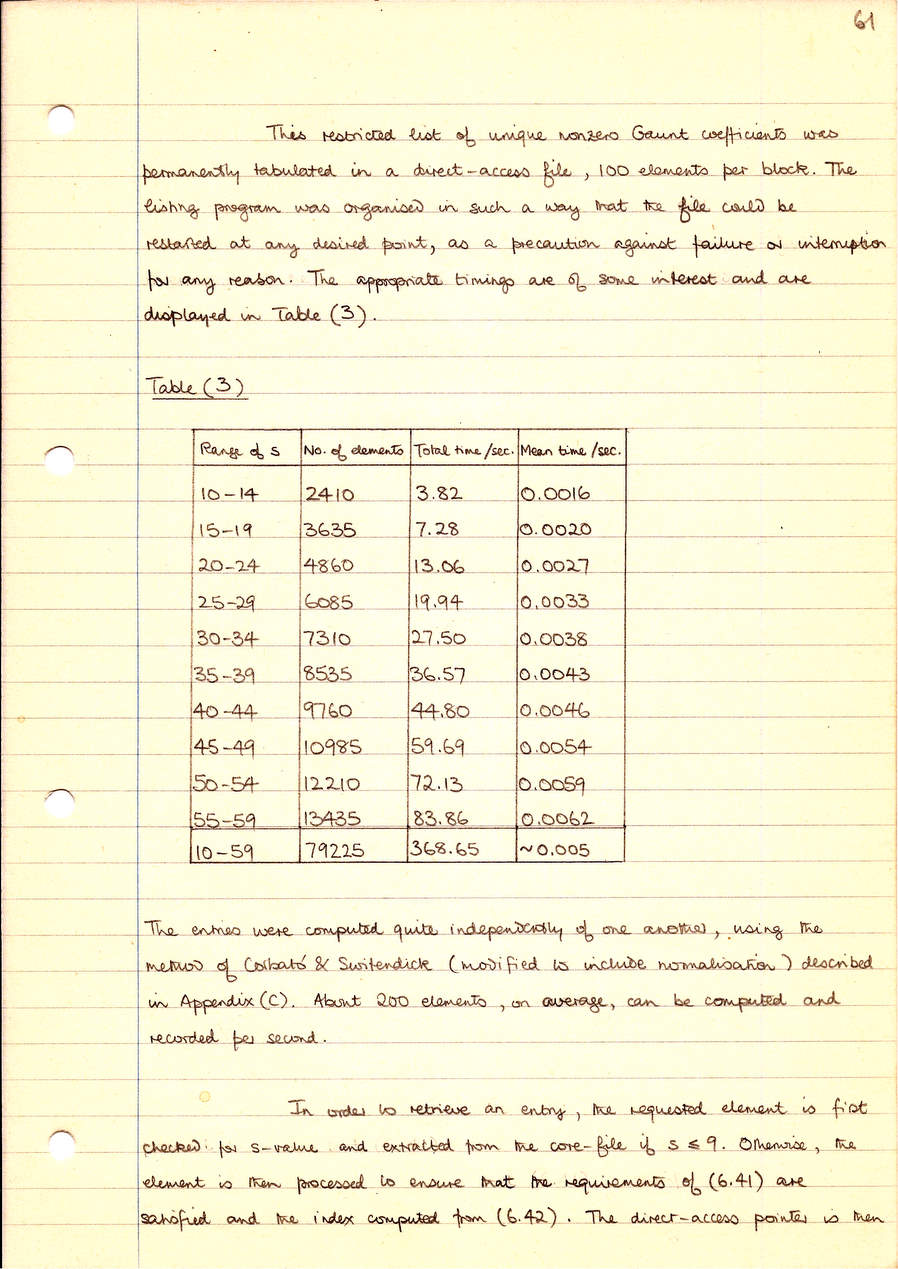 61
This restricted list of unique nonzero Gaunt coefficients was
permanently tabulated in a direct-access file, 100 elements per block. The
listing program was organised in such a way that the file could be
restarted at any desired point, as a precaution against failure or interruption
for any reason. The appropriate timings are of some interest and are
displayed in Table (3).
Table (3)
Range of s No. of elements Total time /sec. Mean time /sec.
10-14 2410 3.82 0.0016
15-19 3635 7.28 0.0020
20-24 4860 13.06 0.0027
25-29 6085 19.94 0.0033
30-34 7310 27.50 0.0038
35-39 8535 36.57 0.0043
40-44 9760 44.80 0.0046
45-49 10985 59.69 0.0054
50-54 12210 72.13 0.0059
55-59 13435 83.86 0.0062
10-59 79225 368.65 ~0.005
The entries were computed quite independently of one another, using the
method of Corbató & Switendick (modified to include normalisation) described
in Appendix (C). About 200 elements, on average, can be computed and
recorded per second.
In order to retrieve an entry, the requested element is first
checked for s-value and extracted from the core-file if s ≤ 9. Otherwise, the
element is then processed to ensure that the requirements of (6.41) are
satisfied and the index computed from (6.42). The direct-access pointer is then